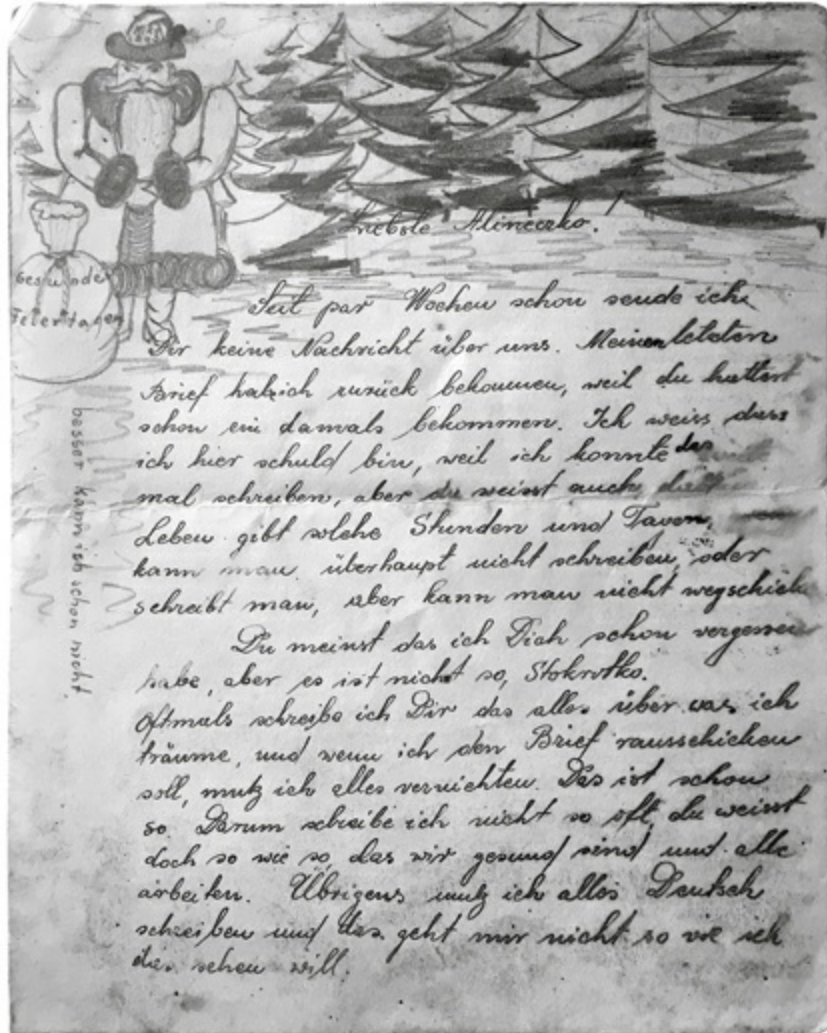 Liebste Alineczko!
Gesunde
Feiertagen
Seit par Wochen schon sende ich
Dir keine Nachricht über uns. Meinen letzten
Brief hab ich zurück bekommen, weil du hattest
schon ein damals bekommen. Ich weiss dass
ich hier schuld bin, weil ich konnte das
mal schreiben, aber du weisst auch
Leben gibt solche Stunden und Tagen,
kann man überhaupt nicht schreiben, oder
schreibt man, aber kann man nicht wegschick
Du meinst das ich Dich schon vergessen
habe, aber es ist nicht so, Stokrotko.
Oftmals schreibe ich Dir das alles über was ich
träume, und wenn ich den Brief rausschicken
soll, mutz ich alles vernichten. Das ist schon
so. Darum schreibe ich nicht so oft, du weisst
doch so wie so, das wir gesund sind und alle
arbeiten. Übrigens mutz ich alles Deutsch
schreiben und das geht mir nicht so wie ich
das sehen will.
besser kann ich schon nicht